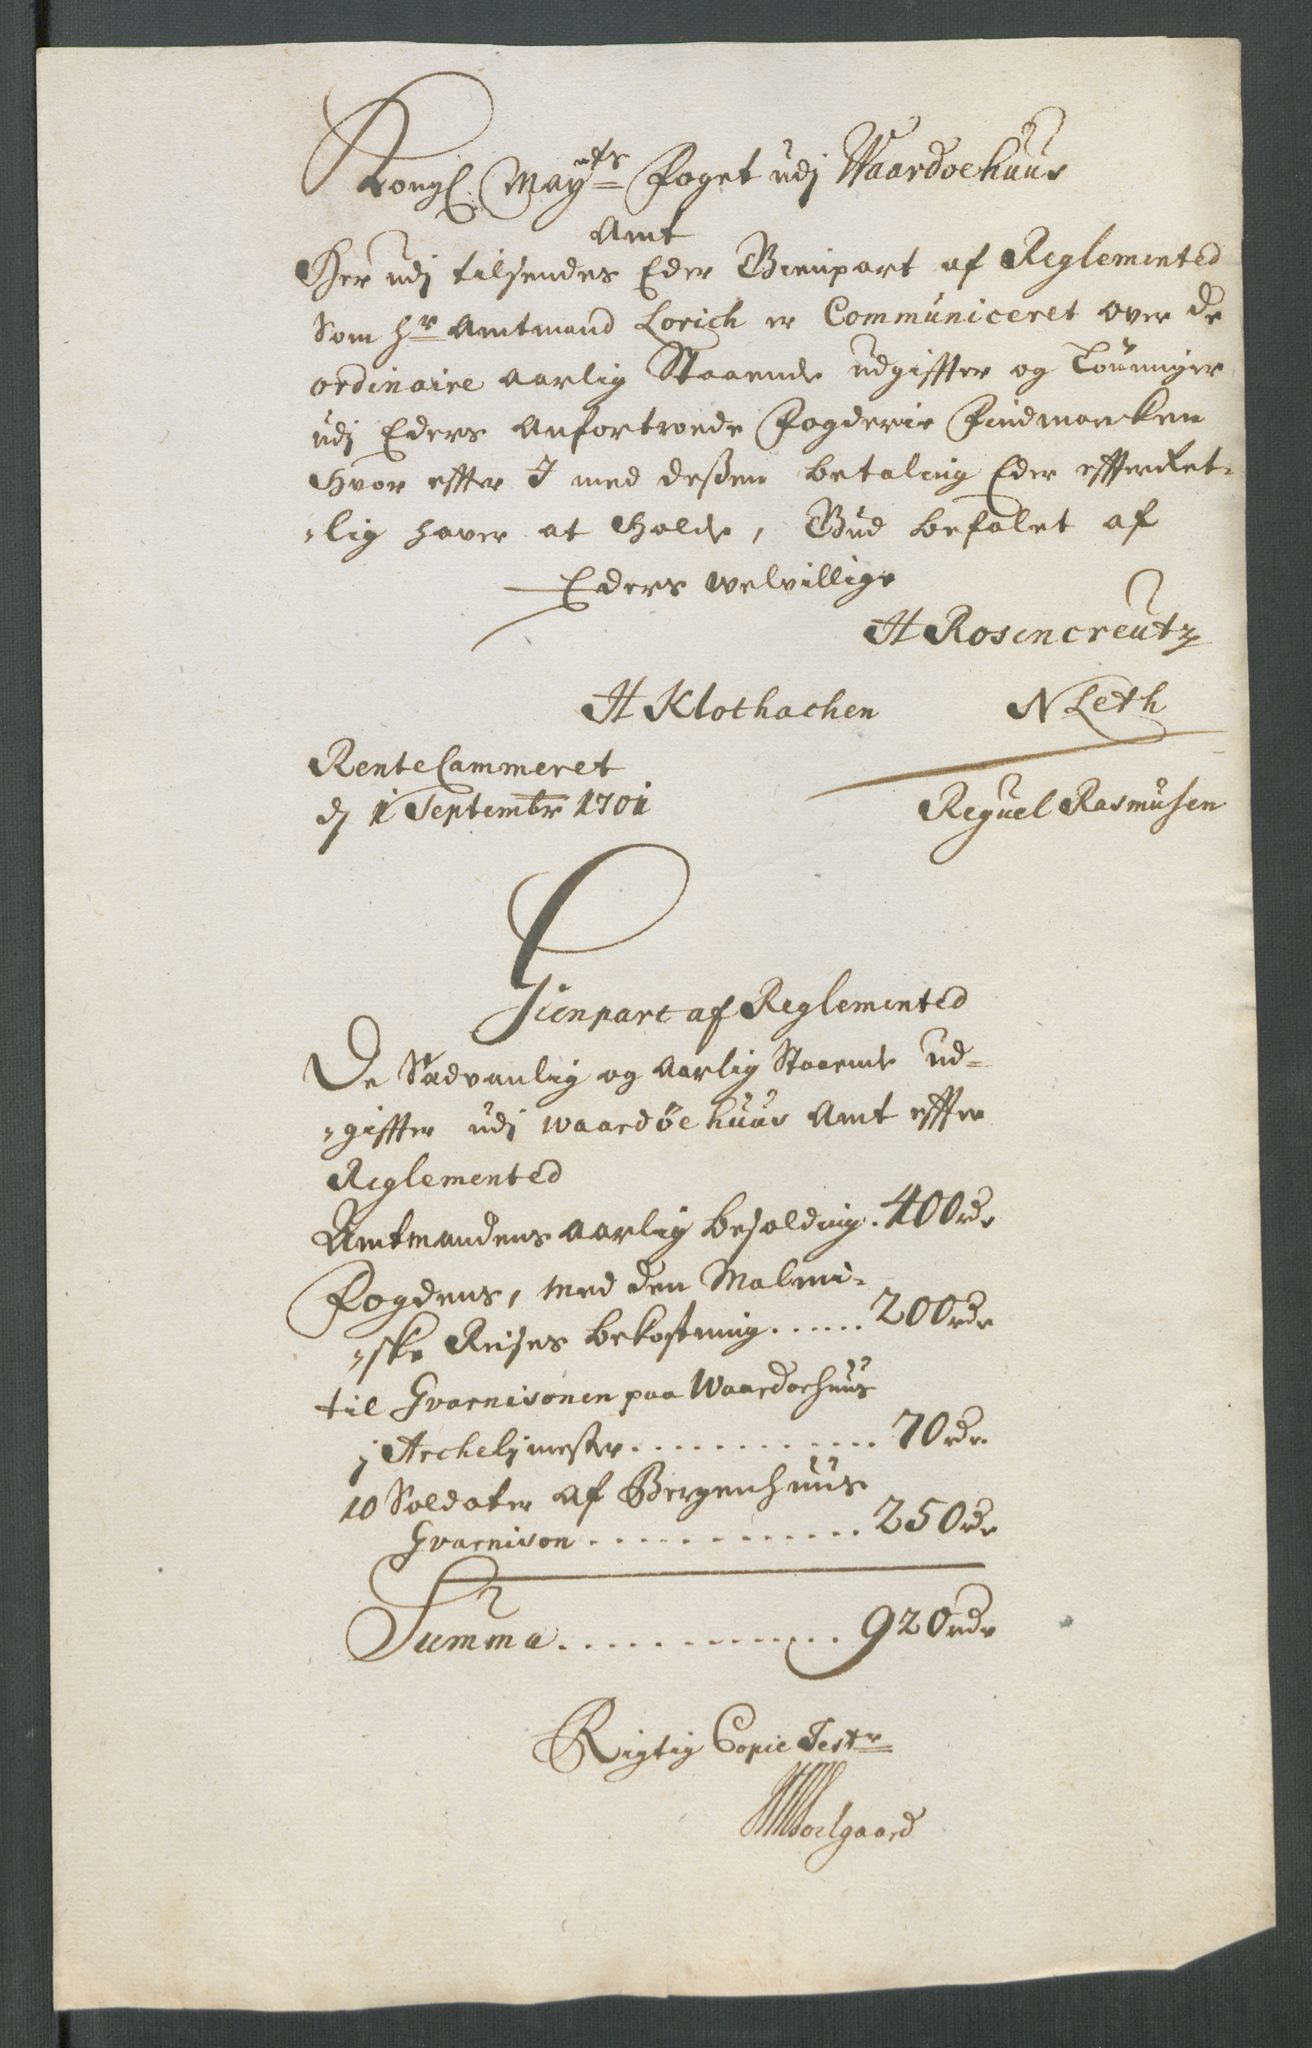 Kongl. Mayts. Foget udj Waardoehuus
Amt
Her udj tilsendes Eder Gienpart af Reglemented
Som Hr Amtmand Lorich er Communiceret over de
ordinaire Aarlig Staaende udgiffter og Lönninger
udj Eders Anfortroede Fogderie Findmarcken
Hvor effter I med deßen betaling Eder efferret-
-lig haver at Holde, Gud befalet af
Eders welvillige
H Rosencreutz
H Klothachen N Leth
RenteCammeret
d 1 Septembr 1701 Reguel Rasmusen
Gienpart af Reglemented
De Sædvanlig og Aarlig Staaende ud-
-giffter udj waardöe huus Amt effter
Reglemented
Amtmandens Aarlig besolding. 400 rdr
Fogdens, med den Malmi-
-ske Reises bekostning...... 200 rdr
til Gvarnisonen paa Waardoehuus
j Archelj mester............. 70 rdr.
10 Soldater af Bergenhuus
Gvarnison............ 250 rdr
Summa............. 920 rdr
Rigtig Copie Testr